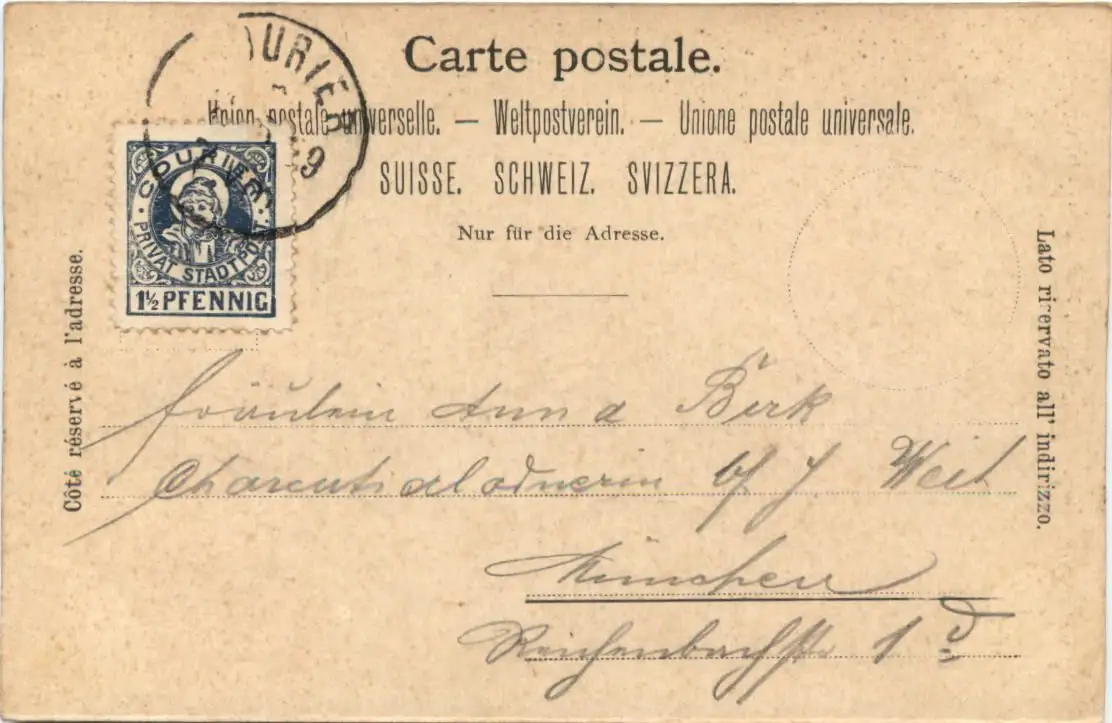 Carte postale.
Union postale universelle. — Weltpostverein. — Unione postale universale.
SUISSE. SCHWEIZ. SVIZZERA.
Nur für die Adresse.
COURIER
9
COURIER
PRIVAT STADTPOST
1½ PFENNIG
Côté réservé à l'adresse.
Lato riservato all' indirizzo.
Fräulein Anna Berk
b/ J Weil
München
Reichenbachstr 1 d